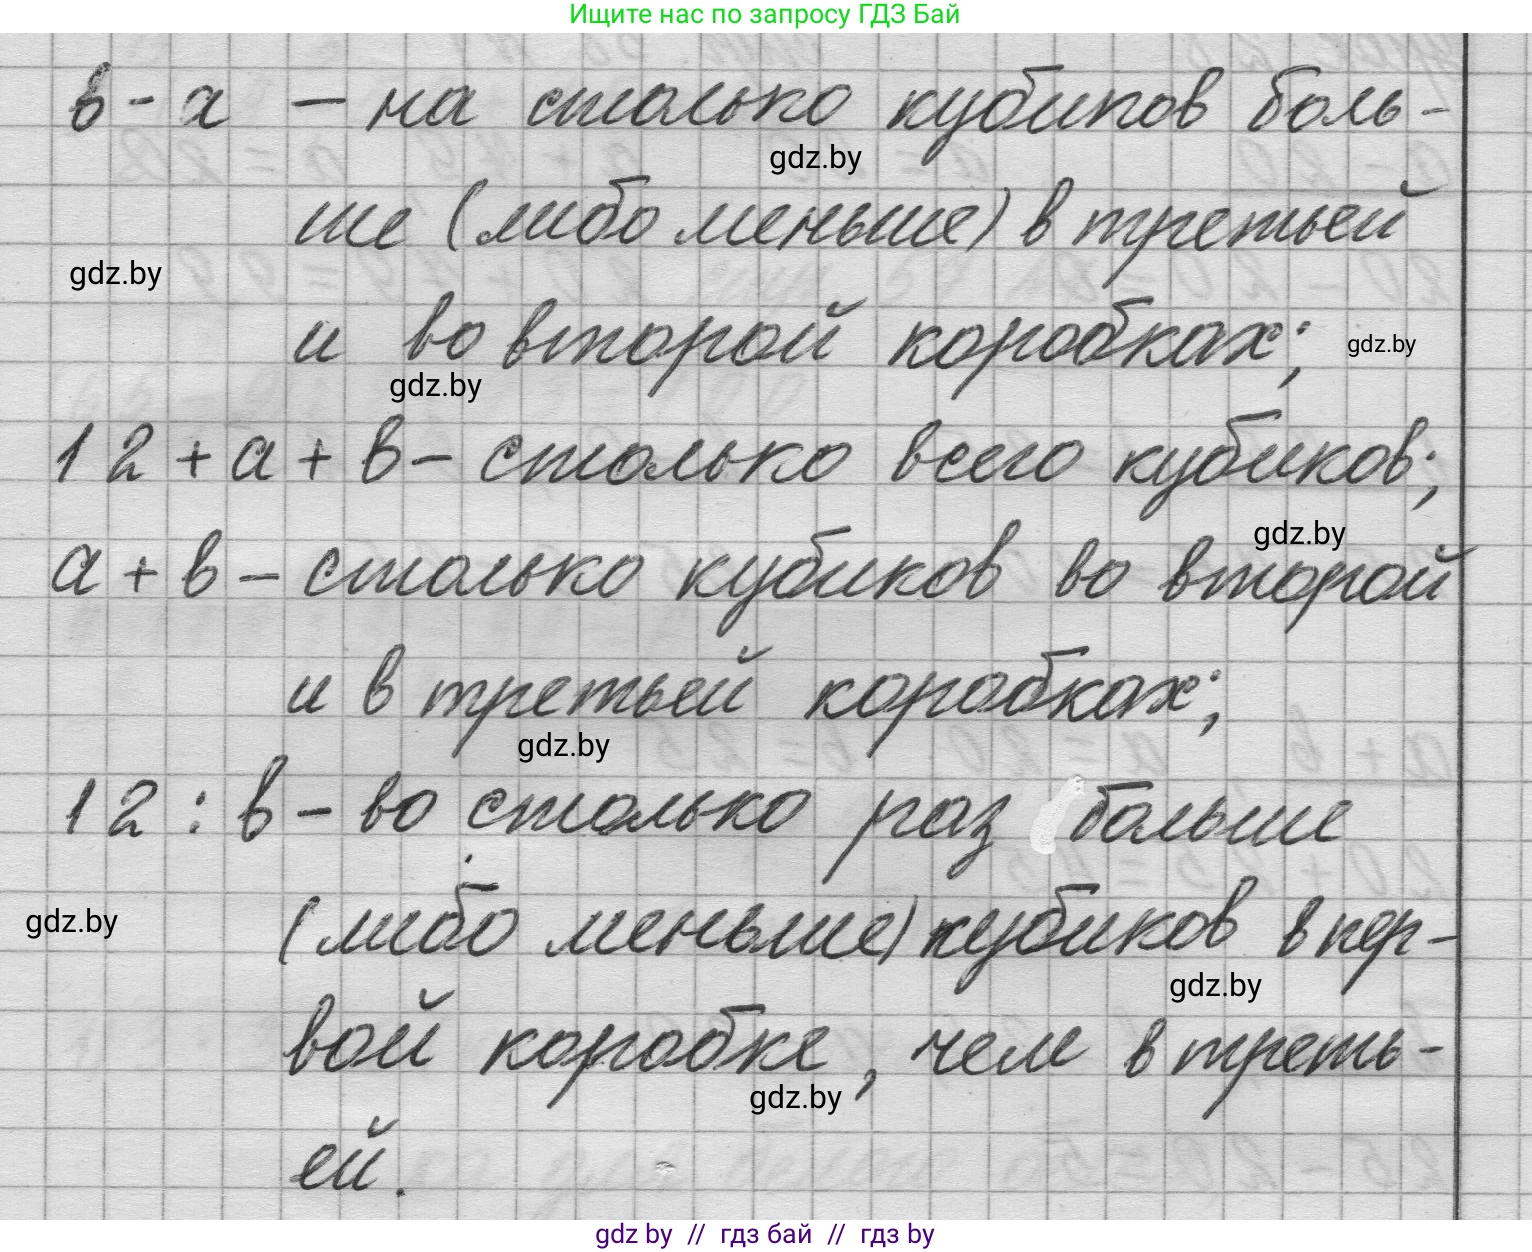 Ищите нас по запросу ГДЗ Бай
в - а – на столько кубиков боль-
gdz.by
ше (либо меньше) в третьей
gdz.by
и во второй коробках;
gdz.by
gdz.by
12 + а + в – столько всего кубиков;
gdz.by
а + в – столько кубиков во второй
и в третьей коробках;
gdz.by
12 : в – во столько раз больше
(либо меньше) кубиков в пер-
gdz.by
gdz.by
вой коробке, чем в треть-
gdz.by
ей.
gdz by // гдз бай // гдз by